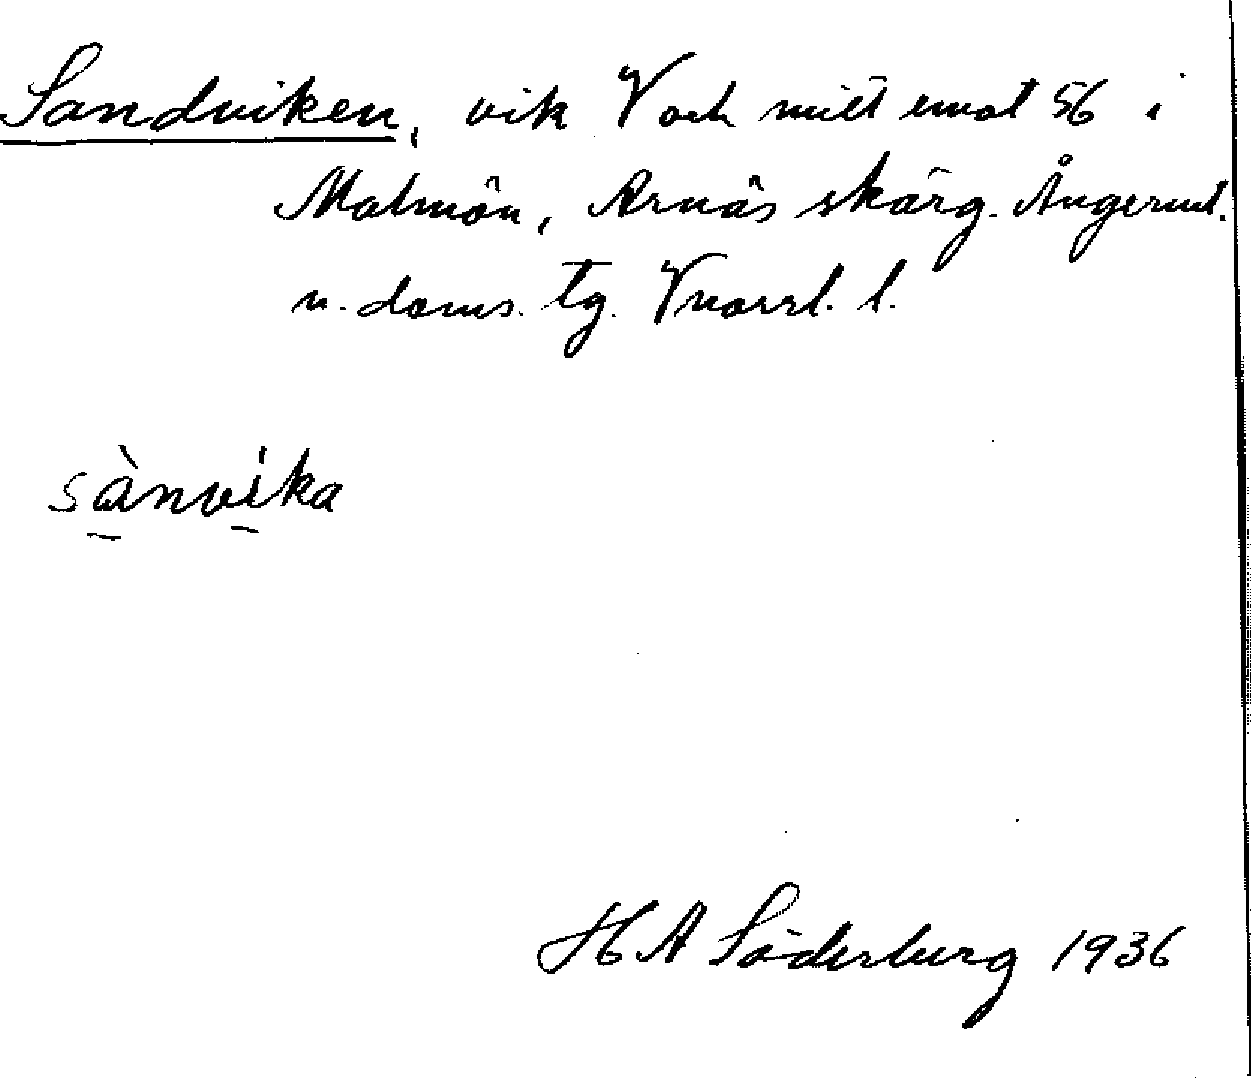 Sandviken, vik V och mitt emot 56 i
Malmön, Arnäs skärg. Ångerml.
n. doms. tg. Vnorrl. l.
sànvika
H A Söderberg 1936